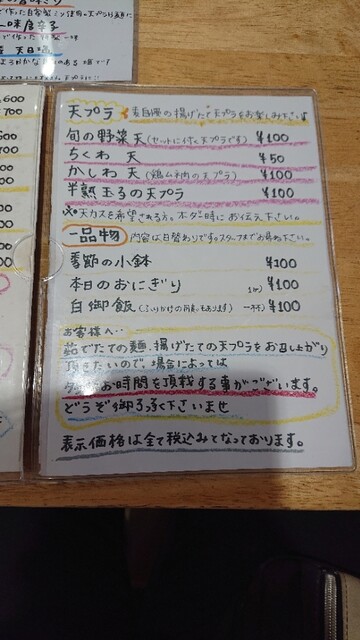 一味唐辛子
600
700
天プラ
当店自慢の揚げたて天プラをお楽しみ下さいませ
旬の野菜天(セットに付く天プラです) ¥100
ちくわ 天 ¥50
かしわ 天(鶏ムネ肉の天プラ) ¥100
半熟玉子の天プラ ¥100
※天カスを希望される方、オーダー時にお伝え下さい。
一品物 内容は日替わりです。スタッフまでお尋ね下さい。
季節の小鉢 ¥100
本日のおにぎり ¥100
白御飯 ¥100
お客様へ…
茹でたての麺、揚げたての天プラをお召し上がり
頂きたいので、場合によっては
少々お時間を頂戴する事がございます。
どうぞ御了承下さいませ
表示価格は全て税込みとなっております。